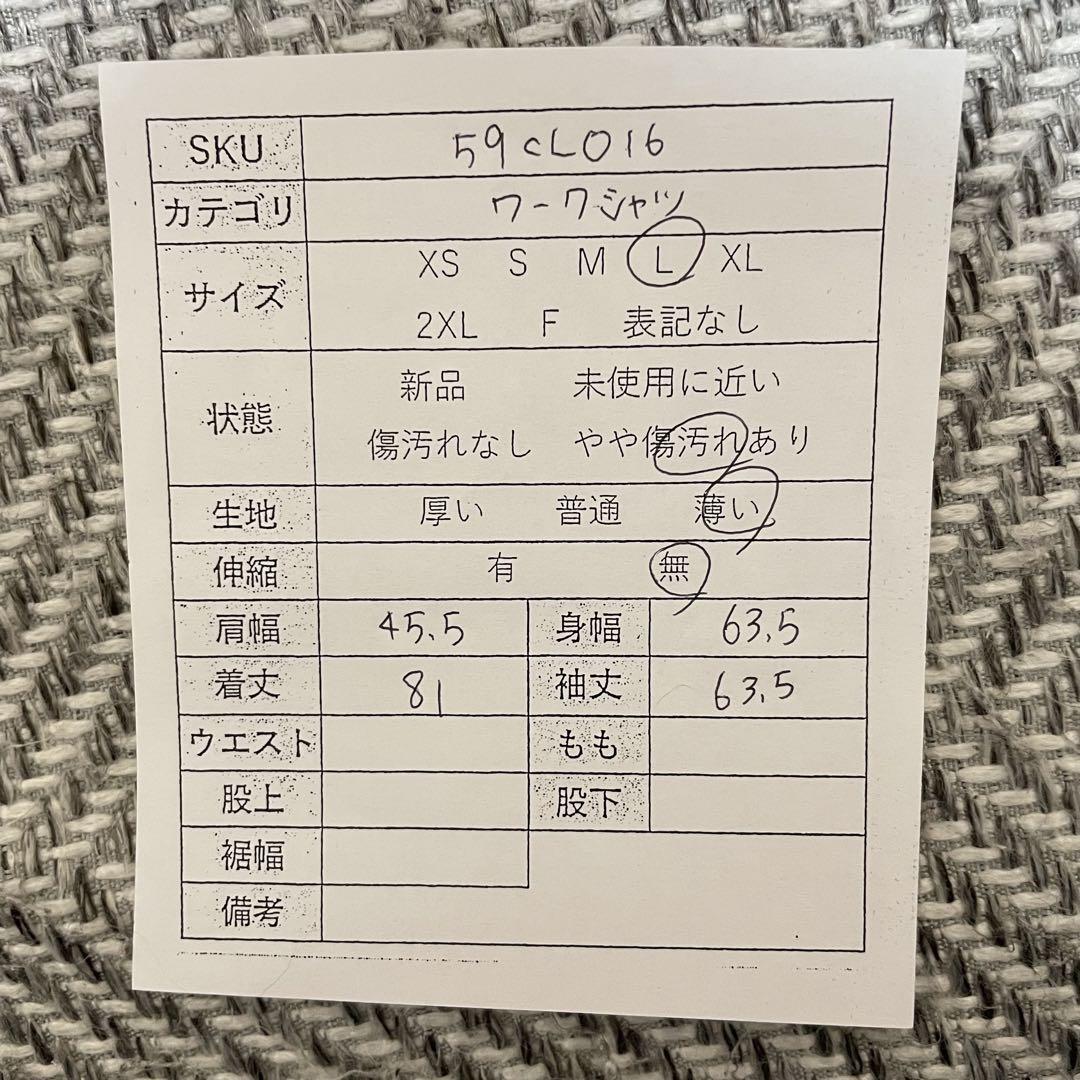 SKU 59CLO16
カテゴリ ワークシャツ
サイズ XS S M L XL
2XL F 表記なし
状態 新品 未使用に近い
傷汚れなし やや傷汚れあり
生地 厚い 普通 薄い
伸縮 有 無
肩幅 45.5 身幅 63.5
着丈 81 袖丈 63.5
ウエスト もも
股上 股下
裾幅
備考